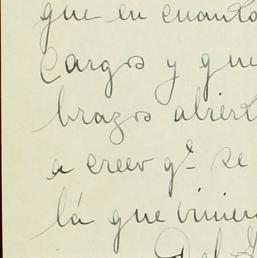 que en cuanto
cargos y que
brazos abiert
a creer qe se
lá que vinier
Del